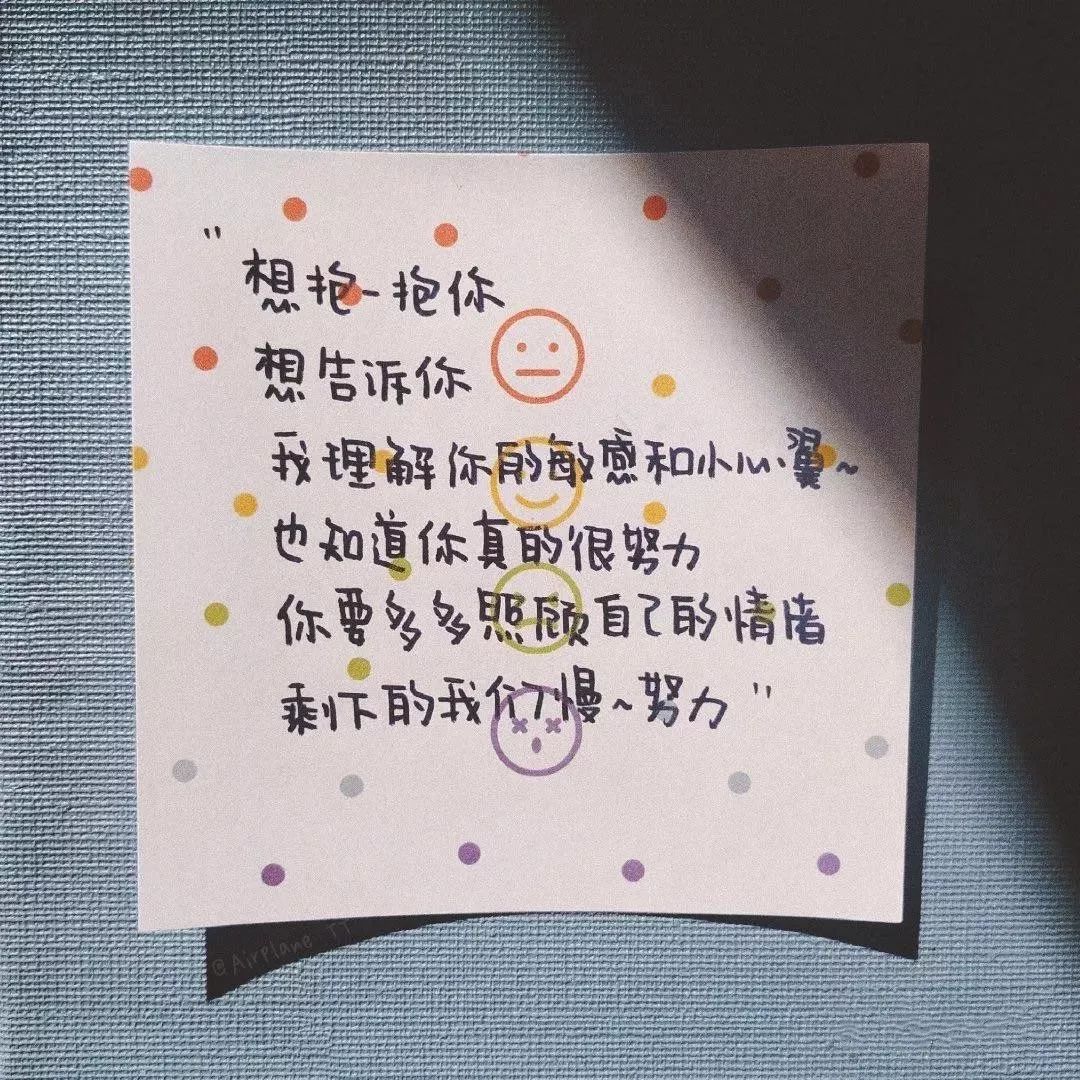 "想抱一抱你
想告诉你
我理解你的敏感和小心翼~
也知道你真的很努力
你要多多照顾自己的情绪
剩下的我们慢~努力"
@AirPlane_TT